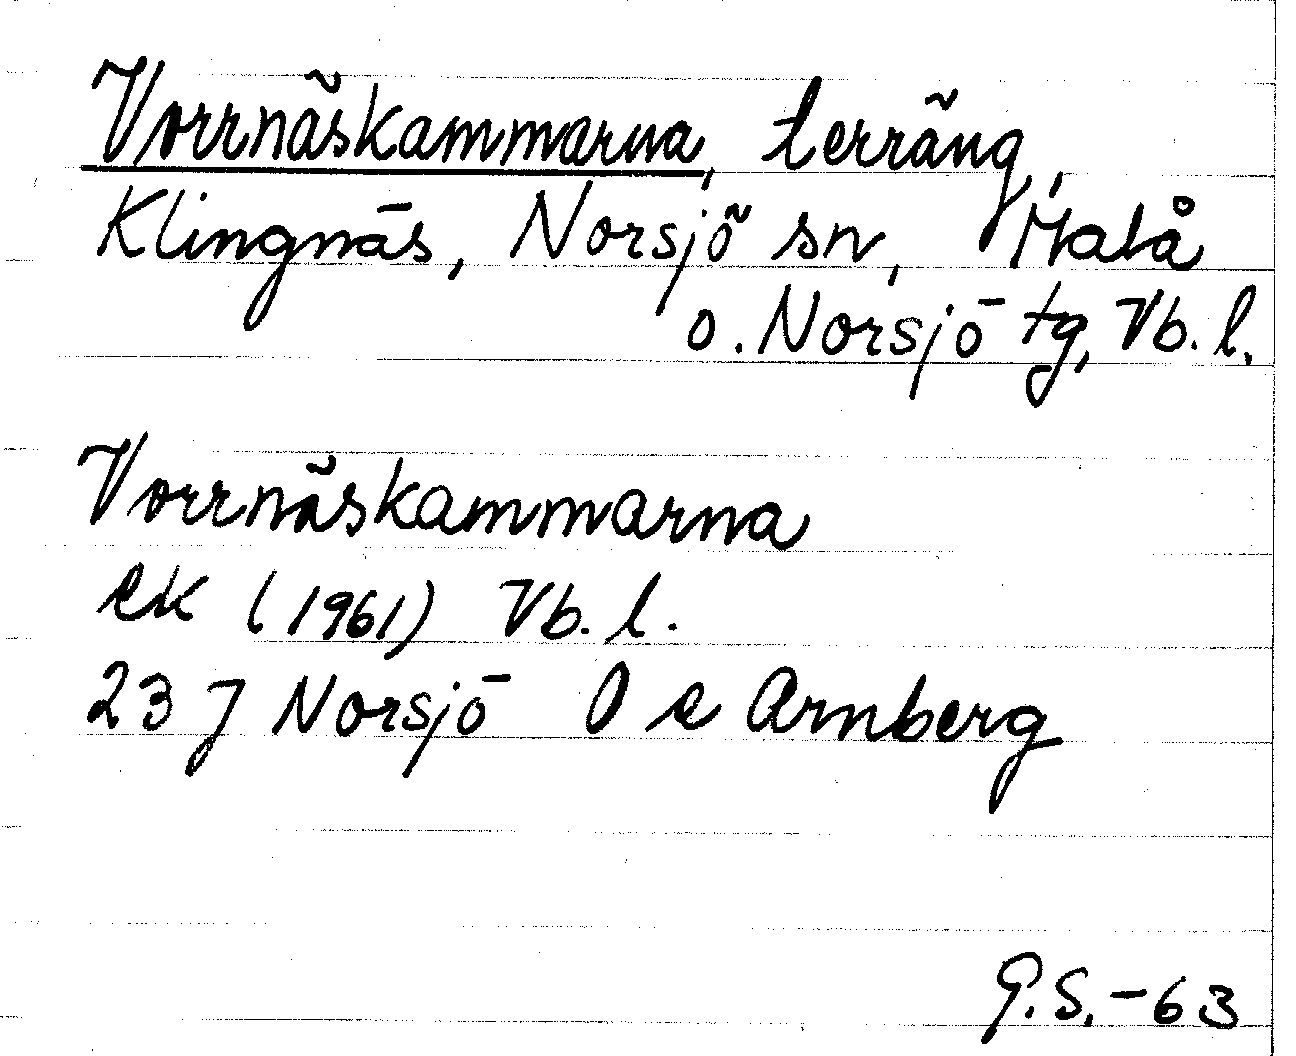 Vorrnäskammarna, terräng,
Klingnäs, Norsjö sn, Malå
o. Norsjö tg, Vb. l.
Vorrnäskammarna
ek (1961) Vb. l.
23 J Norsjö O a Arnberg
G.S.-63